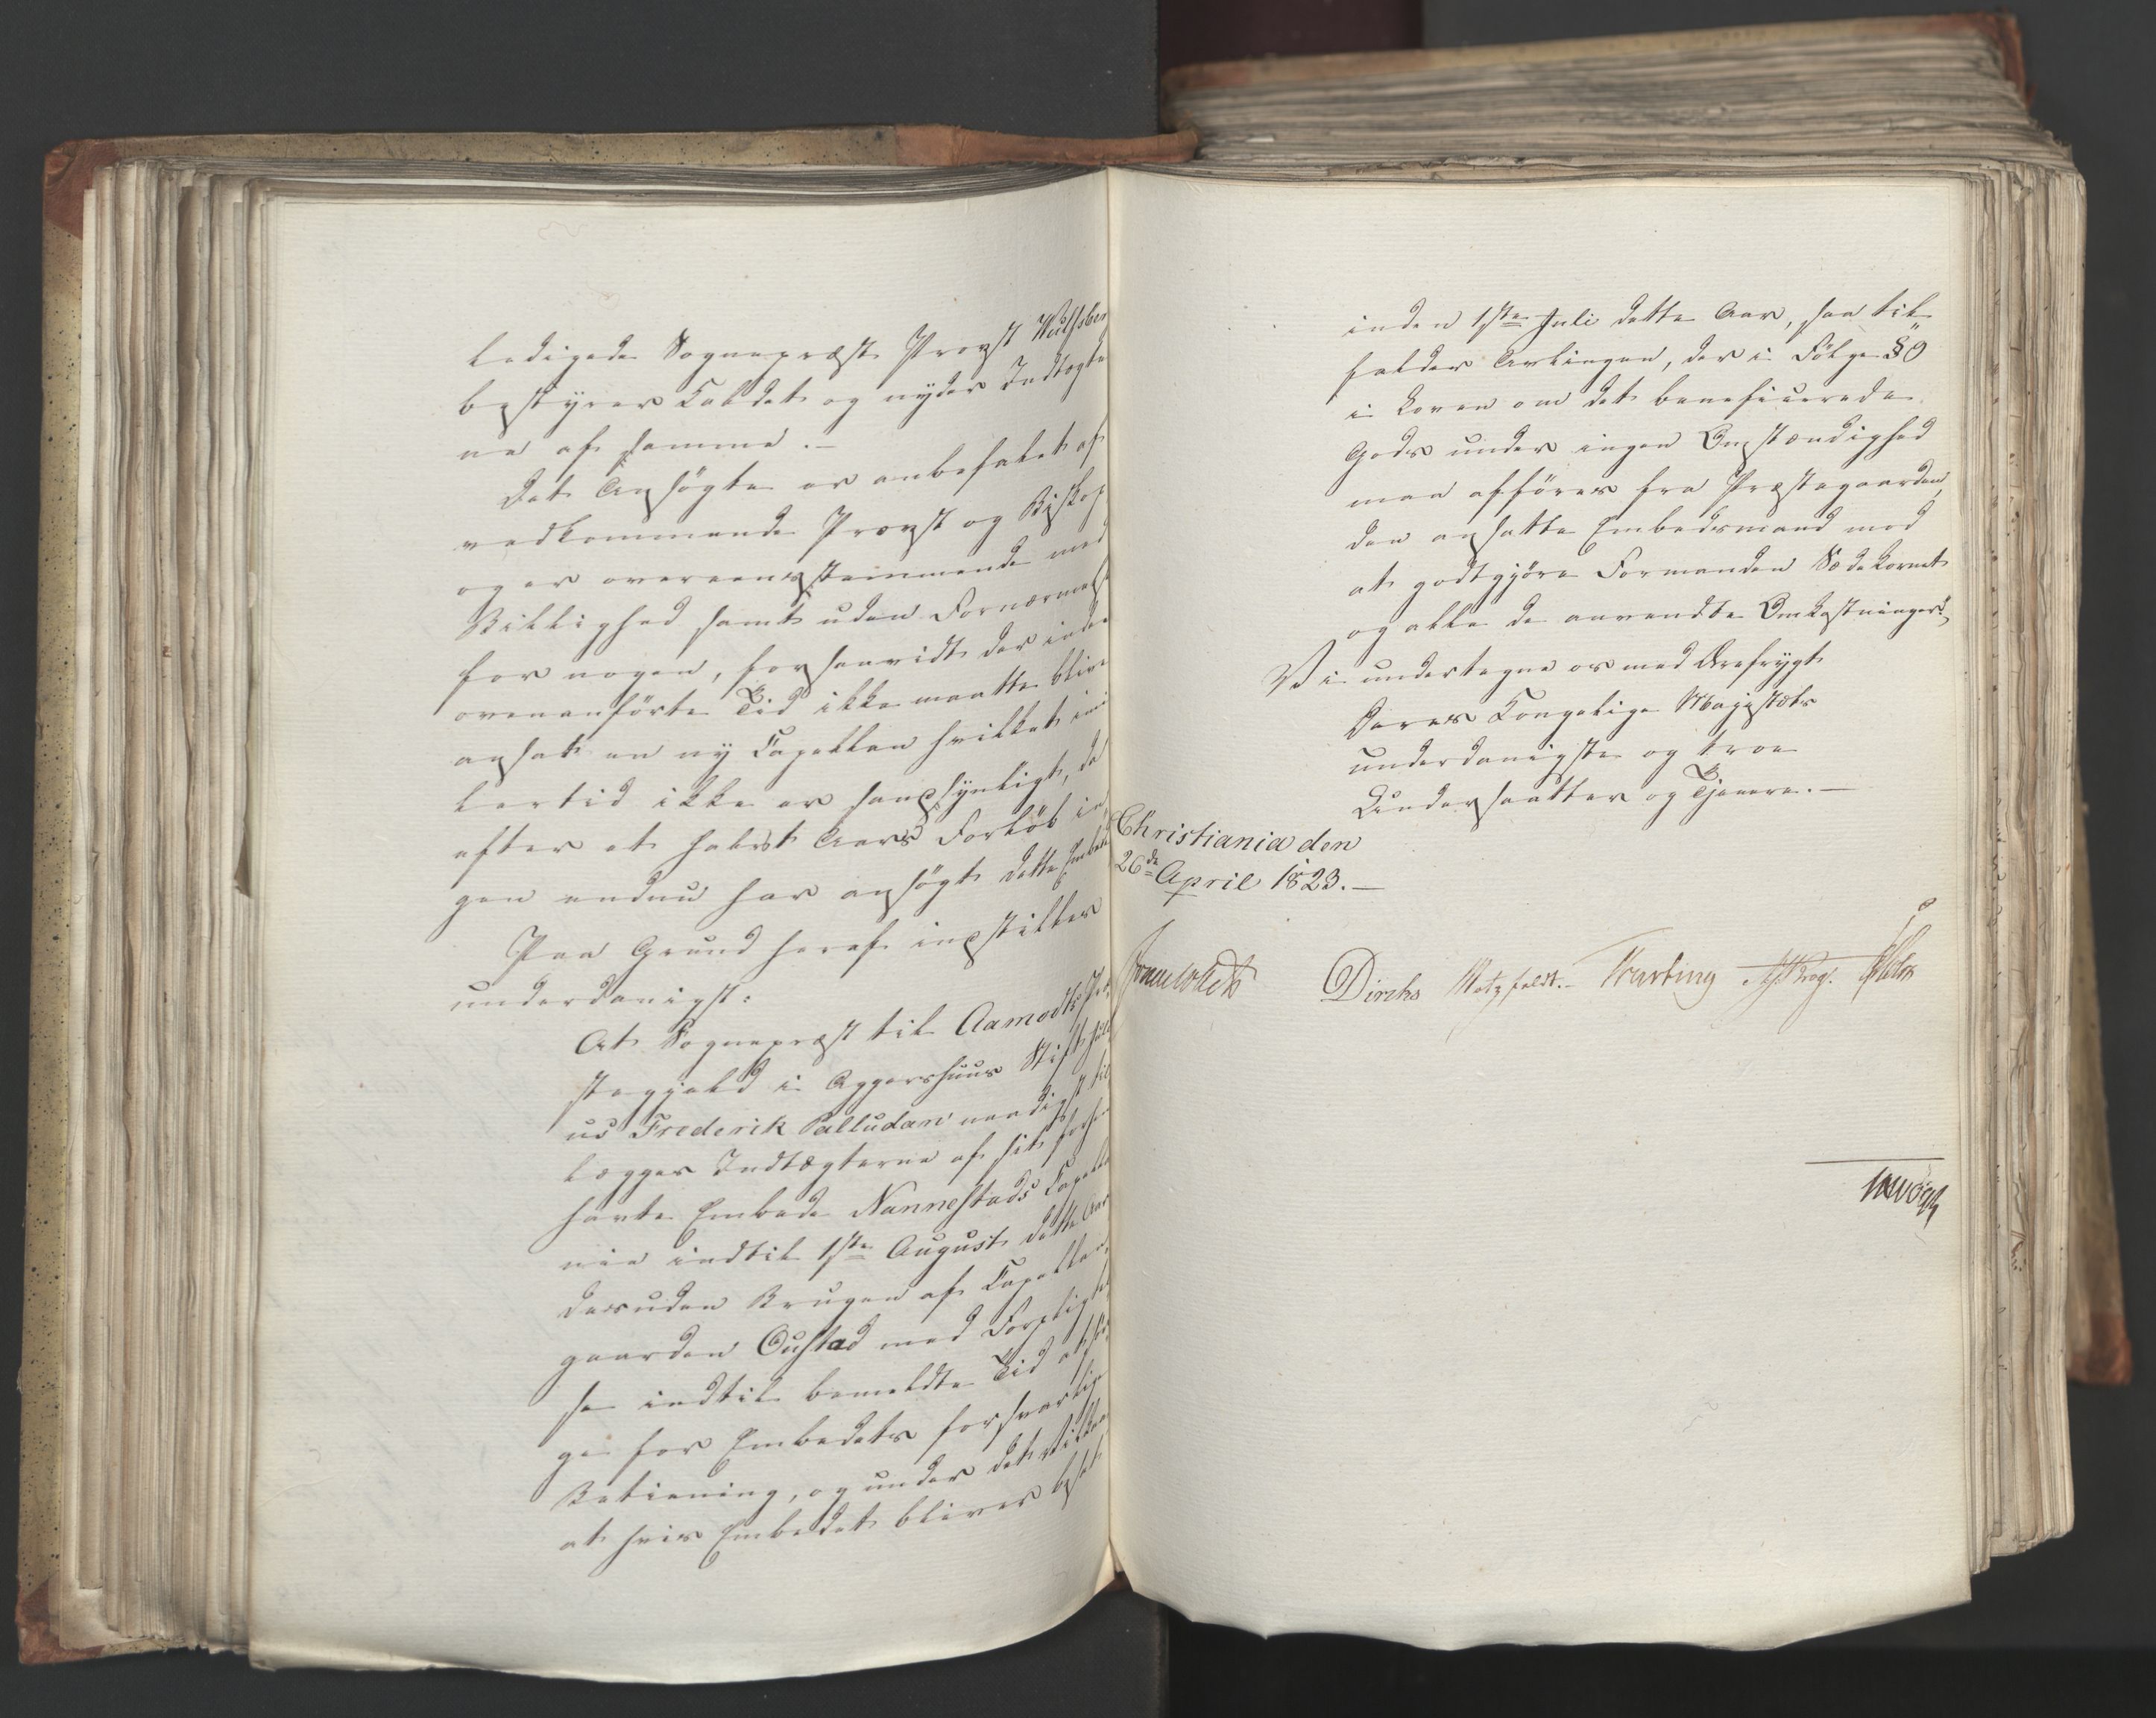 ledigede Sognepræst Provst Wulfsber
bestyrer Kaldet og nyder Indtægte
ne af samme.-
Det Ansögte er anbefalet af
vedkommende Provst og Biskop
og er overeensstemmende med
Billighed samt uden Fornærmelse
for nogen, forsaavidt der inden
ovenanförte Tid ikke maatte blive
ansat en ny Capellan hvilket imid
lertid ikke er sandsynligt, da
efter et halvt Aars Forlöb in
gen endnu har ansögt dette Embede
Paa Grund heraf indstilles
underdanigst:
At Sognepræst til Aamodts Præ
stegjeld i Aggershuus Stift Juli
us Frederik Palludan naadigst til
lægges Indtægterne af sit forhen
havte Embede Nannestads Capella
nie indtil 1ste August dette Aar
desuden Brugen af Capellan
gaarden Oustad med Forpligtel
se indtil bemeldte Tid at sör
ge for Embedets forsvarlige
Betiening, og under det Vilkaar
at hvis Embedet bliver besat
inden 1ste Juli dette Aar, saa til
falder Avlingen, der i Fölge § 9
i Loven om det beneficerede
Gods under ingen Omstændighed
maa afföres fra Præstegaarden,
den ansatte Embedsmand mod
at godtgjöre Formanden Sædekornet
og alle de anvendte Omkostninger",
Vi undertegne os med Ærefrygt
Deres Kongelige Majestæts
underdanigste og troe
Undersaatter og Tjenere.-
Christiania den
26de April 1823.-
Sommerhielm
Diriks Motzfeldt.- Krag.